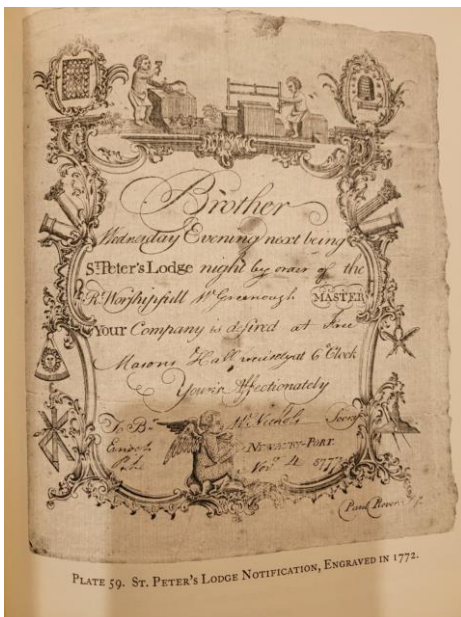 Brother
Wednesday Evening next being
St Peter's Lodge night by order of the
Rt Worshipfull Wm Greenough MASTER
Your Company is desired at Free
Masons Hall at 6 o'Clock
Your's Affectionately
To Br. Wm Nichols Secry
Enoch NEWBURY-PORT
Novr 4 5772
Paul Revere
PLATE 59. ST. PETER'S LODGE NOTIFICATION, ENGRAVED IN 1772.